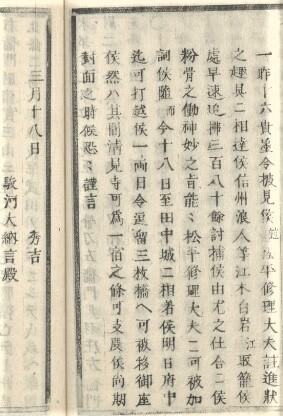 一昨十六貴墨今披見候從松平修理大夫註進狀
之趣具ニ相達候信州浪人等江木白岩江取籠候
處早速追拂三百八十餘討捕候由尤之仕合ニ候
粉骨之働神妙之旨能ミ松平修理大夫ニ可被加
詞候隨而今十八日至田中城ニ相着候明日府中
迄可打越候一兩日令逗留三枚橋ヘ可被移御座
候然ハ其刻清見寺可為一宿之條可支度候尚期
對面之時候恐ミ謹言
三月十八日 秀吉
駿河大納言殿